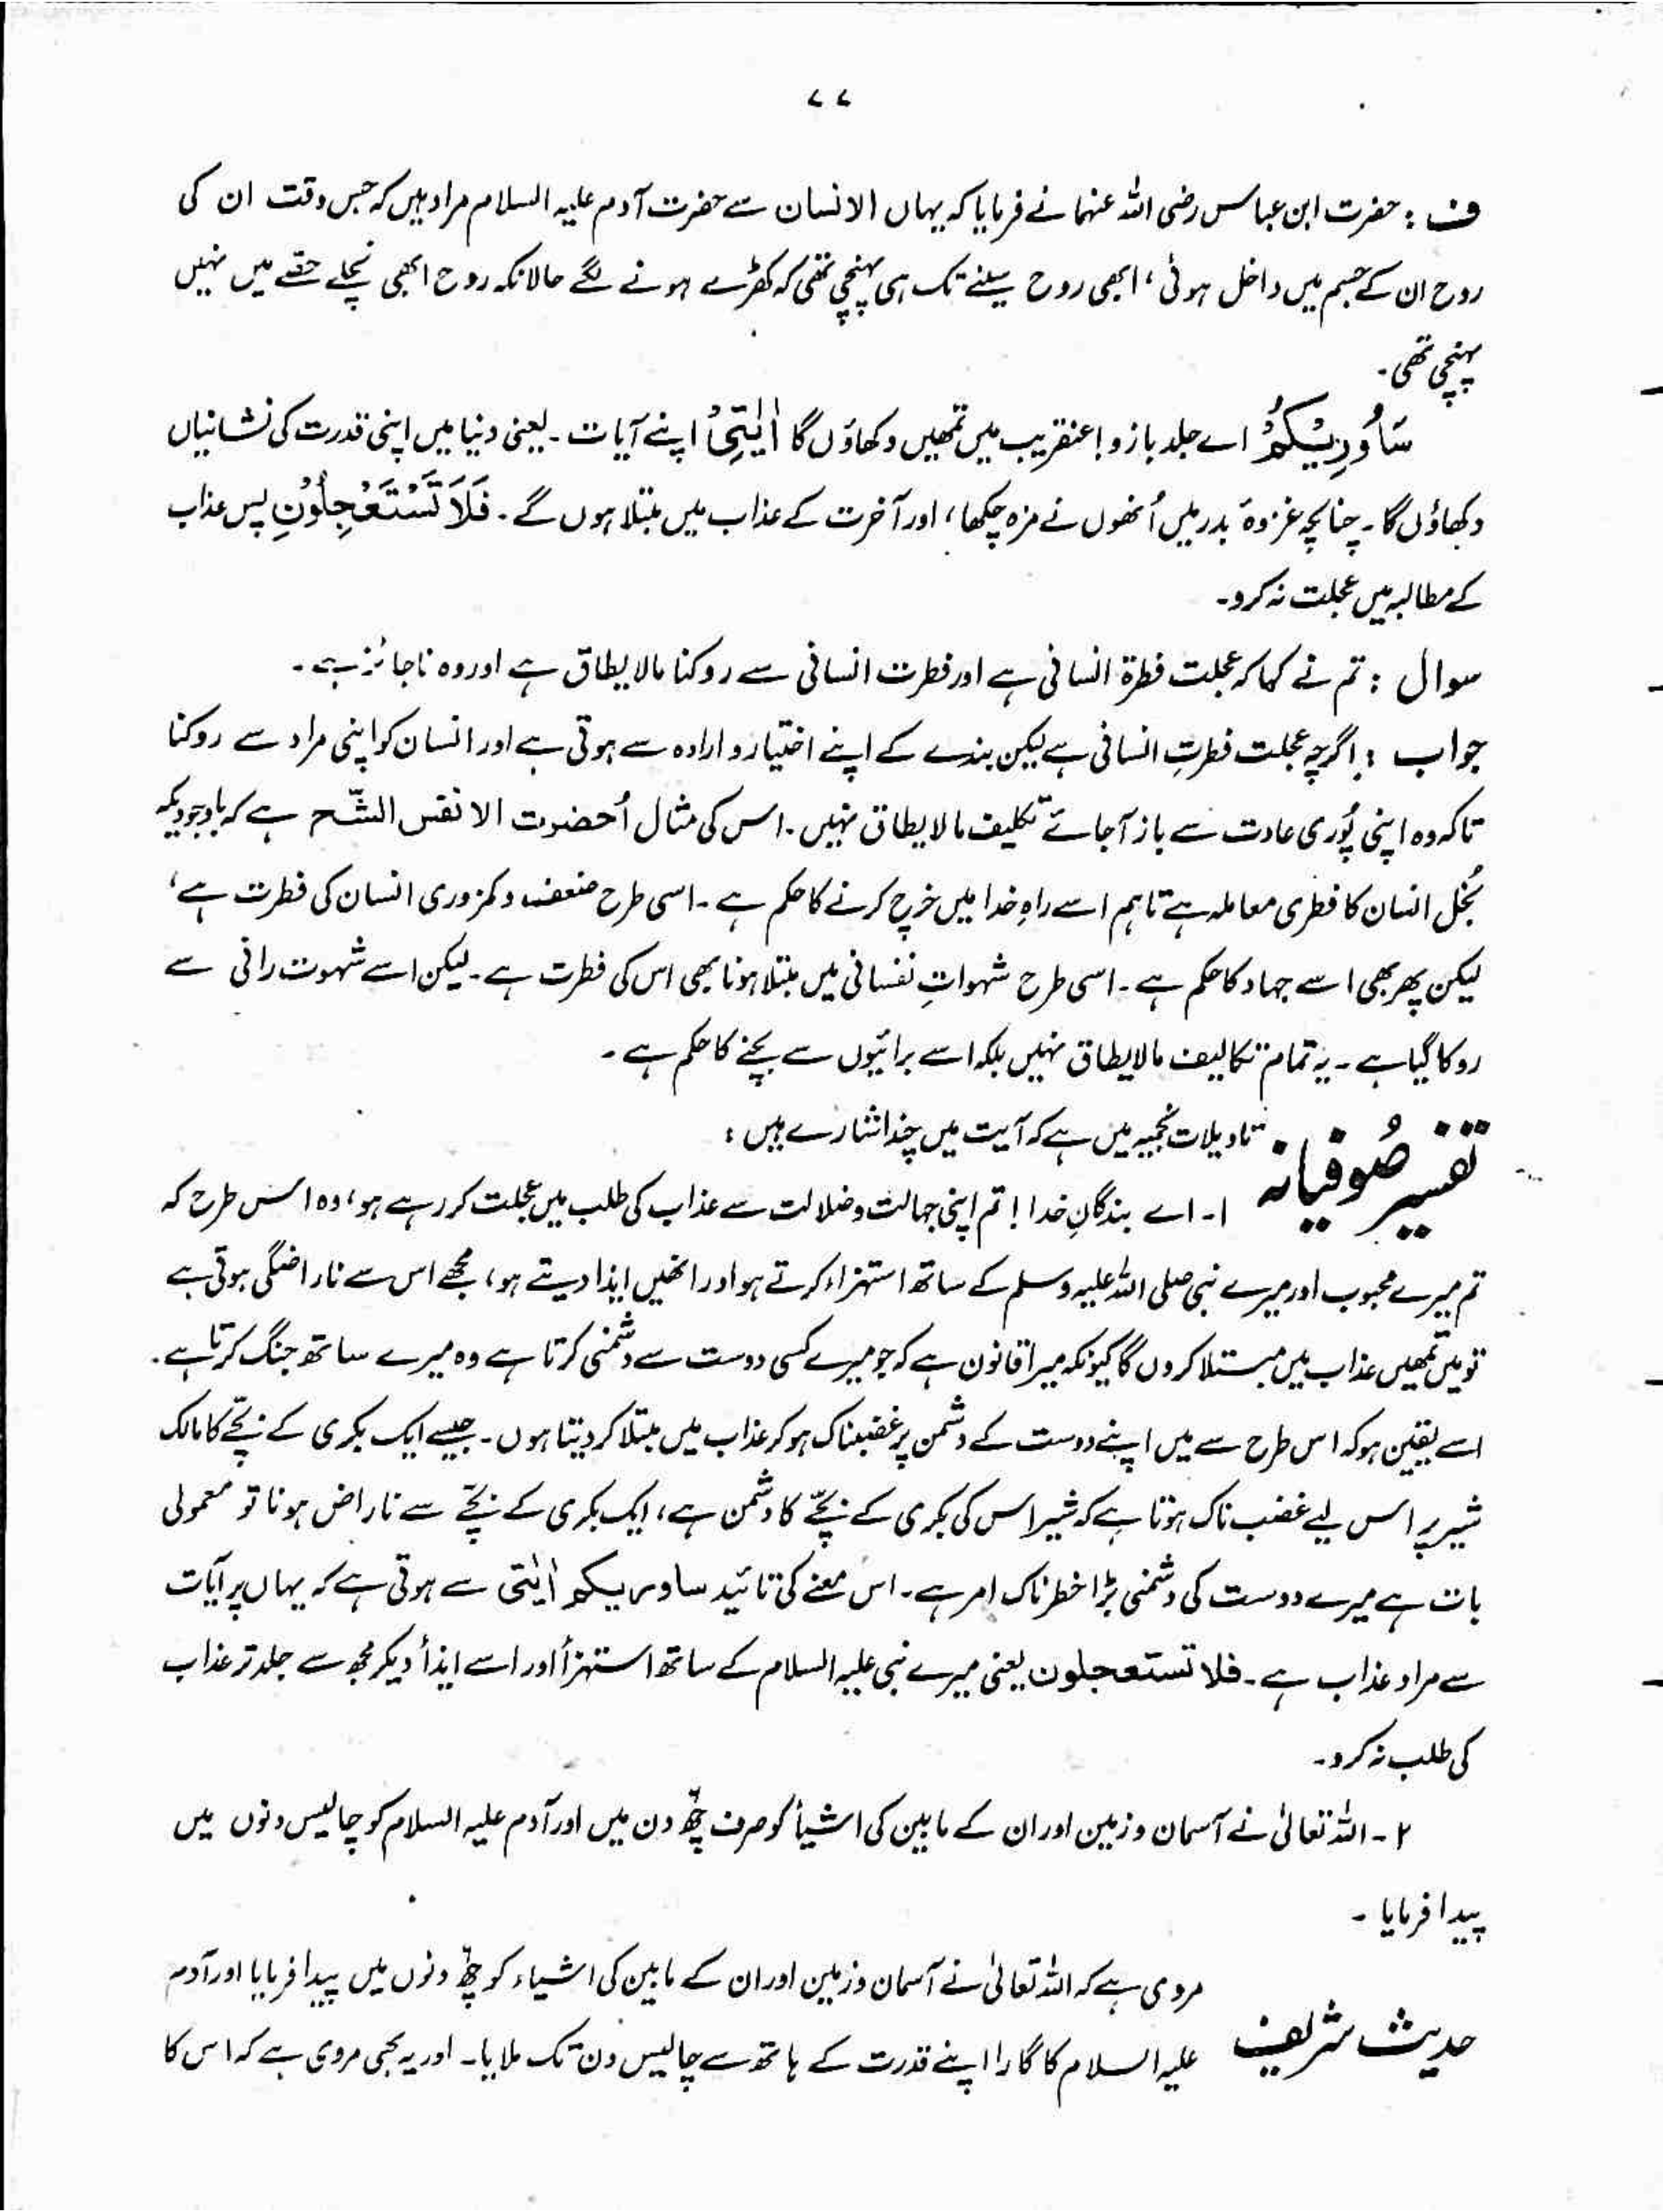 ۷۷
ف : حضرت ابن عباس رضی اللہ عنہما نے فرمایا کہ یہاں الانسان سے حضرت آدم علیہ السلام مراد ہیں کہ جس وقت ان کی
روح ان کے جسم میں داخل ہوئی ، ابھی روح سینے تک ہی پہنچی تھی کہ کھڑے ہونے لگے حالانکہ روح ابھی نچلے حصّے میں نہیں
پہنچی تھی۔
سَاُورِیْکُمْ اے جلد بازو ! عنقریب میں تمھیں دکھاؤں گا اٰیٰتِیْ اپنے آیات ۔ یعنی دنیا میں اپنی قدرت کی نشانیاں
دکھاؤں گا۔ چنانچہ غزوۂ بدر میں اُنھوں نے مزہ چکھا ، اور آخرت کے عذاب میں مبتلا ہوں گے۔ فَلَا تَسْتَعْجِلُوْنِ پس عذاب
کے مطالبہ میں عجلت نہ کرو۔
سوال : تم نے کہا کہ عجلت فطرۃ انسانی ہے اور فطرت انسانی سے روکنا مالا یطاق ہے اور وہ ناجائز ہے ۔
جواب : اگرچہ عجلت فطرتِ انسانی ہے لیکن بندے کے اپنے اختیار و ارادہ سے ہوتی ہے اور انسان کو اپنی مراد سے روکنا
تاکہ وہ اپنی پُوری عادت سے باز آجائے تکلیف مالا یطاق نہیں۔ اس کی مثال اُحضرت الا نفس الشّح ہے کہ باوجودیکہ
بُخل انسان کا فطری معاملہ ہے تاہم اسے راہِ خدا میں خرچ کرنے کا حکم ہے ۔ اسی طرح ضعف و کمزوری انسان کی فطرت ہے ،
لیکن پھر بھی اسے جہاد کا حکم ہے ۔ اسی طرح شہواتِ نفسانی میں مبتلا ہونا بھی اس کی فطرت ہے۔ لیکن اسے شہوت رانی سے
روکا گیا ہے ۔ یہ تمام تکالیف مالا یطاق نہیں بلکہ اسے برائیوں سے بچنے کا حکم ہے ۔
تفسیر صُوفیانہ تاویلات نجمیہ میں ہے کہ آیت میں چند اشارے ہیں :
۱۔ اے بندگانِ خدا ! تم اپنی جہالت و ضلالت سے عذاب کی طلب میں عجلت کر رہے ہو ، وہ اس طرح کہ
تم میرے محبوب اور میرے نبی صلی اللہ علیہ وسلم کے ساتھ استہزاء کرتے ہو اور انھیں ایذا دیتے ہو ، مجھے اس سے ناراضگی ہوتی ہے
تو میں تمھیں عذاب میں مبتلا کروں گا کیونکہ میرا قانون ہے کہ جو میرے کسی دوست سے دشمنی کرتا ہے وہ میرے ساتھ جنگ کرتا ہے ۔
اسے یقین ہو کہ اس طرح سے میں اپنے دوست کے دشمن پر غضبناک ہو کر عذاب میں مبتلا کر دیتا ہوں ۔ جیسے ایک بکری کے بچّے کا مالک
شیر پر اس لیے غضب ناک ہوتا ہے کہ شیر اس کی بکری کے بچّے کا دشمن ہے ، ایک بکری کے بچّے سے ناراض ہونا تو معمولی
بات ہے میرے دوست کی دشمنی بڑا خطرناک امر ہے۔ اس معنے کی تائید ساوریکم اٰیٰتی سے ہوتی ہے کہ یہاں پر آیات
سے مراد عذاب ہے ۔ فلا تستعجلون یعنی میرے نبی علیہ السلام کے ساتھ استہزأ اور اسے ایذأ دیکر مجھ سے جلد تر عذاب
کی طلب نہ کرو۔
۲ ۔ اللہ تعالیٰ نے آسمان و زمین اور ان کے مابین کی اشیأ کو صرف چھّ دن میں اور آدم علیہ السلام کو چالیس دنوں میں
پیدا فرمایا ۔
مروی ہے کہ اللہ تعالیٰ نے آسمان و زمین اور ان کے مابین کی اشیاء کو چھّ دنوں میں پیدا فرمایا اور آدم
حدیث شریف علیہ السلام کا گارا اپنے قدرت کے ہاتھ سے چالیس دن تک ملایا۔ اور یہ بھی مروی ہے کہ اس کا